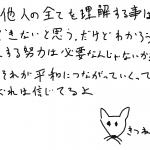 他人の全てを理解する事は
できないと思う。だけどわかろう
する努力は必要なんじゃないか
それが平和につながっていくって
ぐれは信じてるよ
きつね